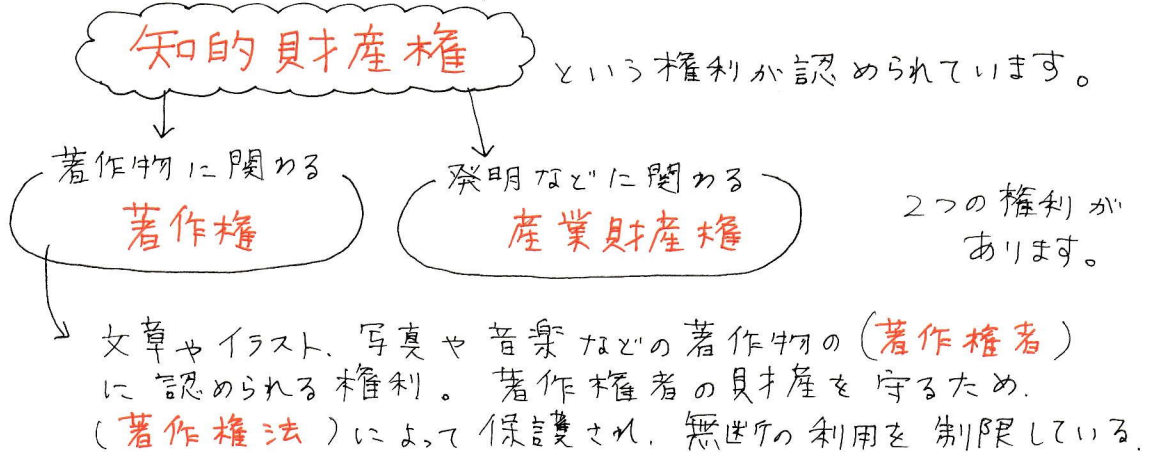 知的財産権 という権利が認められています。
著作物に関わる 発明などに関わる
著作権 産業財産権
2つの権利が
あります。
文章やイラスト、写真や音楽などの著作物の(著作権者)
に認められる権利。著作権者の財産を守るため、
(著作権法)によって保護され、無断の利用を制限している。